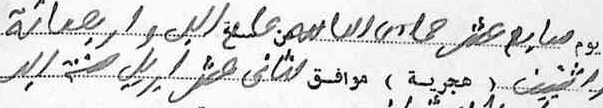 يوم سابع عشر جمادى الثانى من سنة الف واربعمائة
واثنين ( هجرية ) موافق لثانى عشر ابريل سنة الف